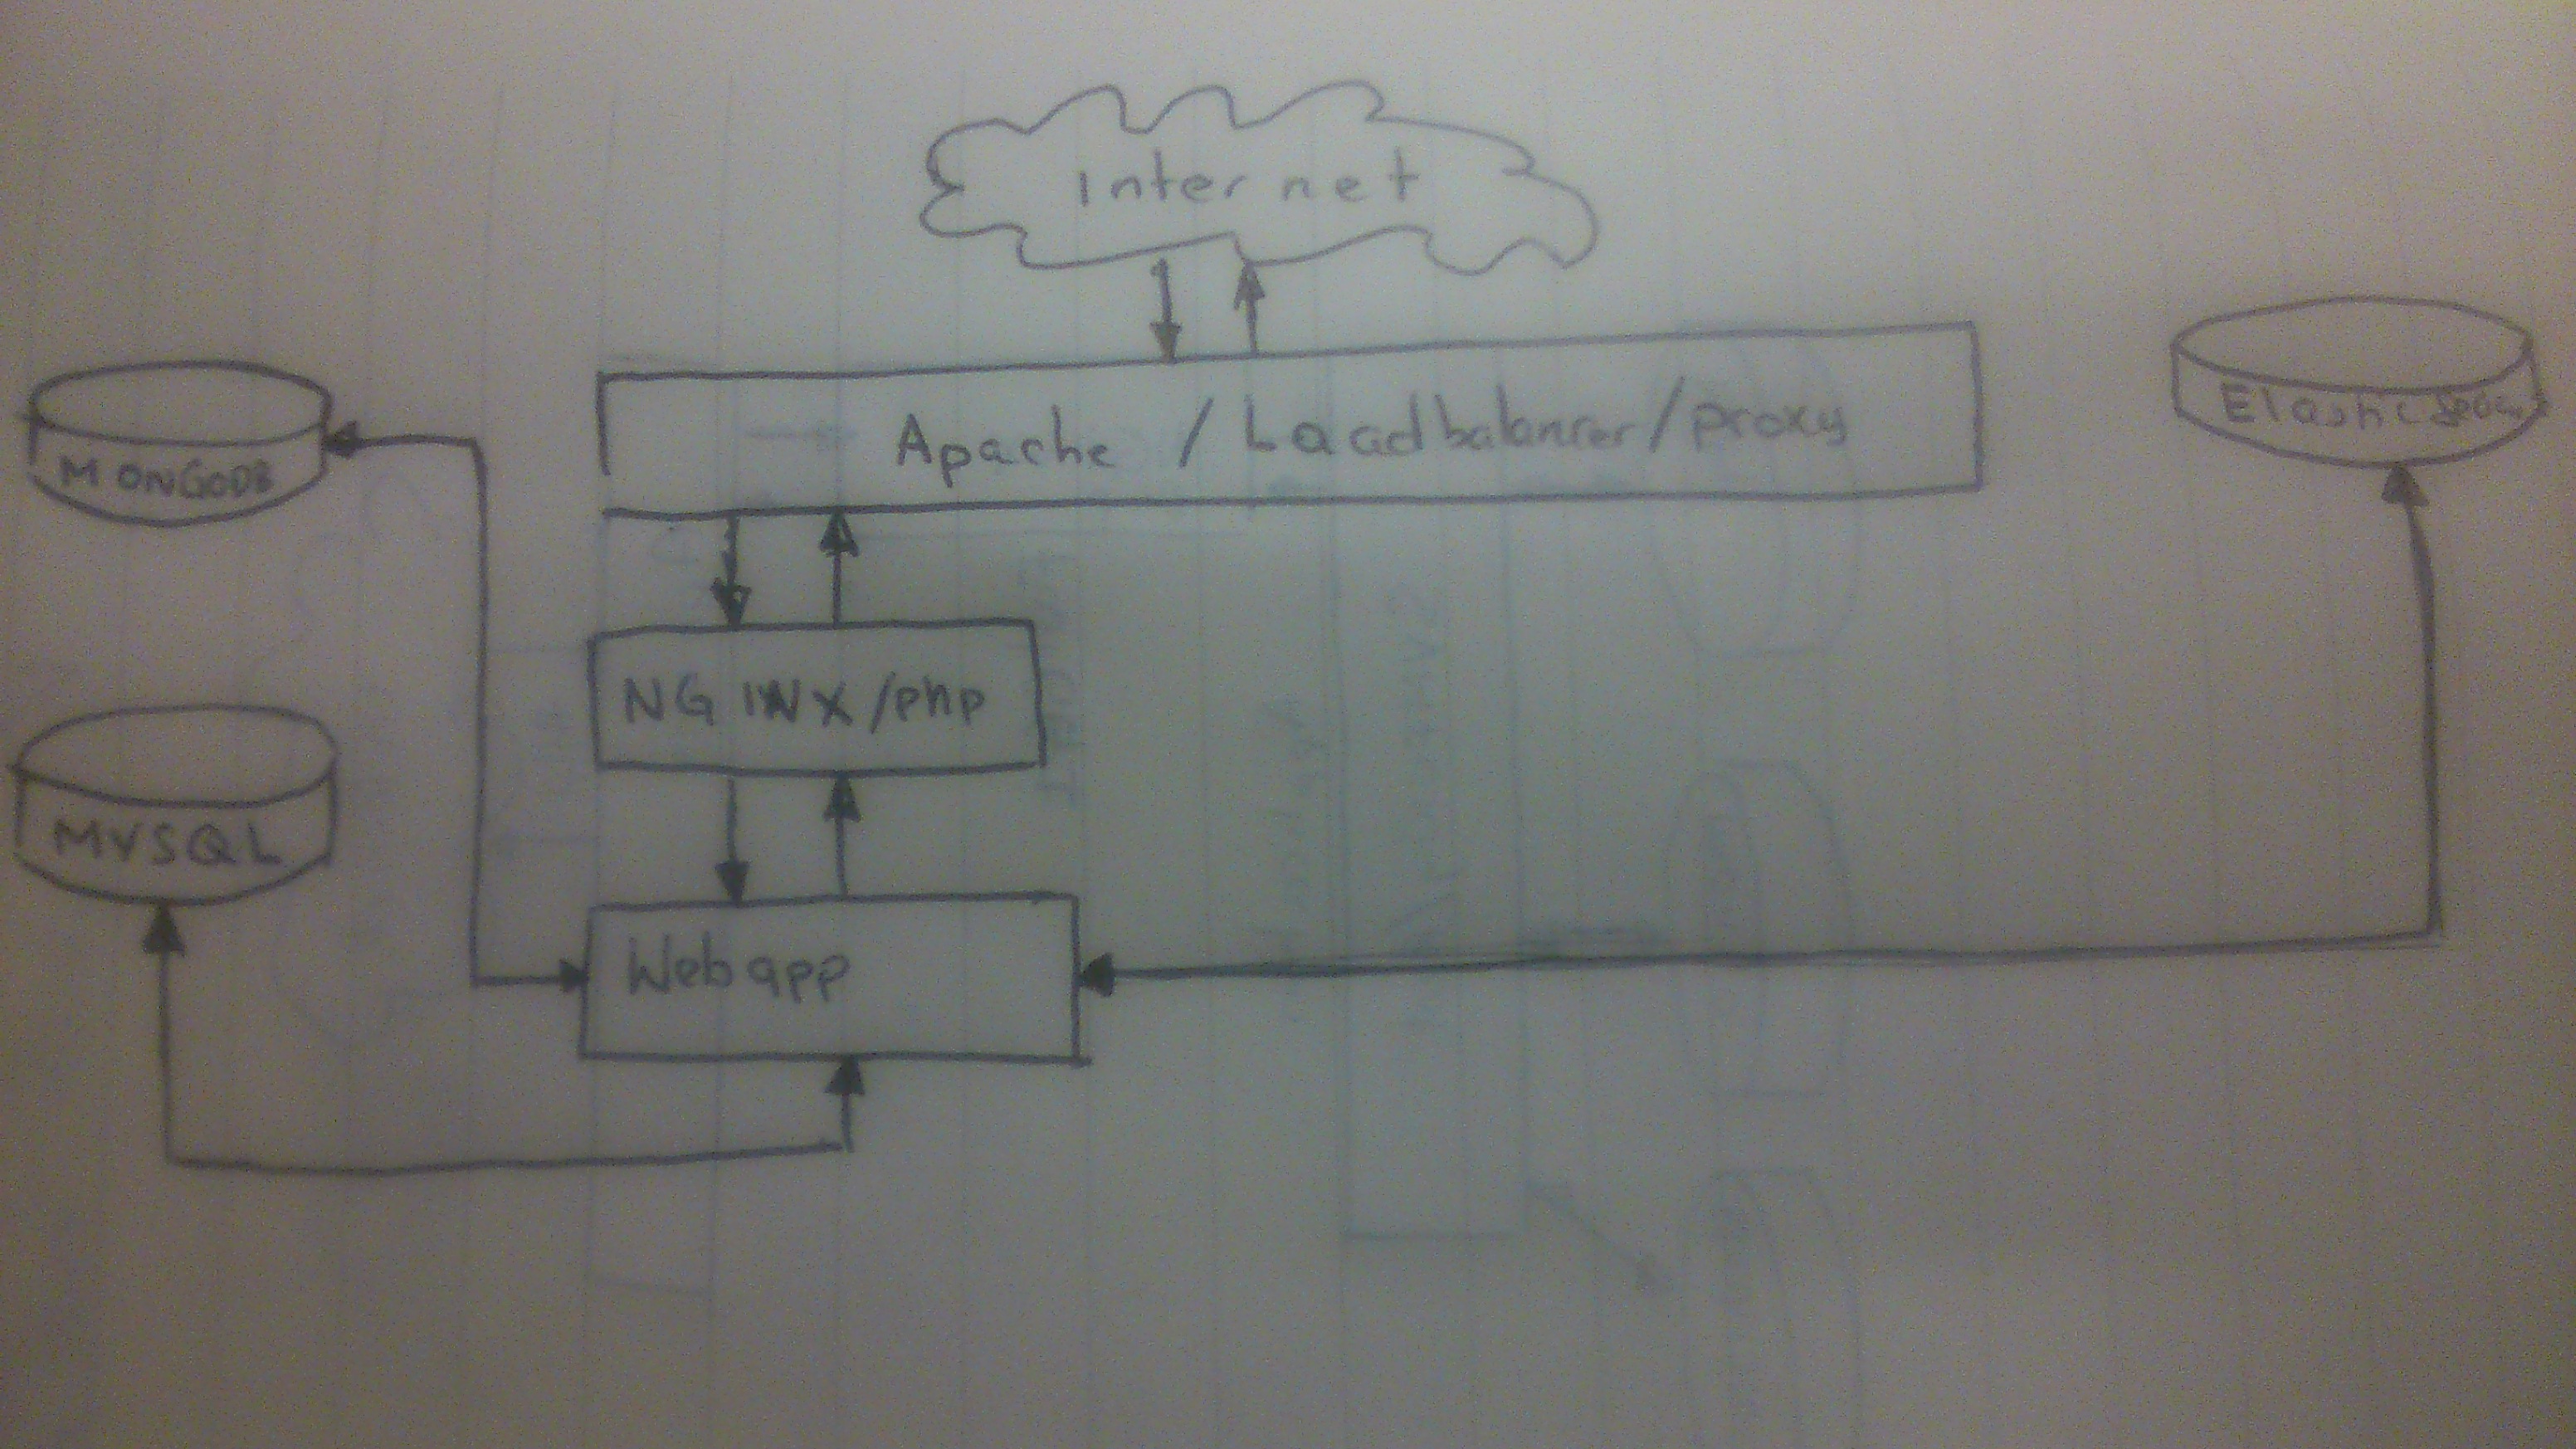 Internet
Apache / Loadbalancer / proxy
Elastic
MONGODB
NGINX/php
MYSQL
Webapp